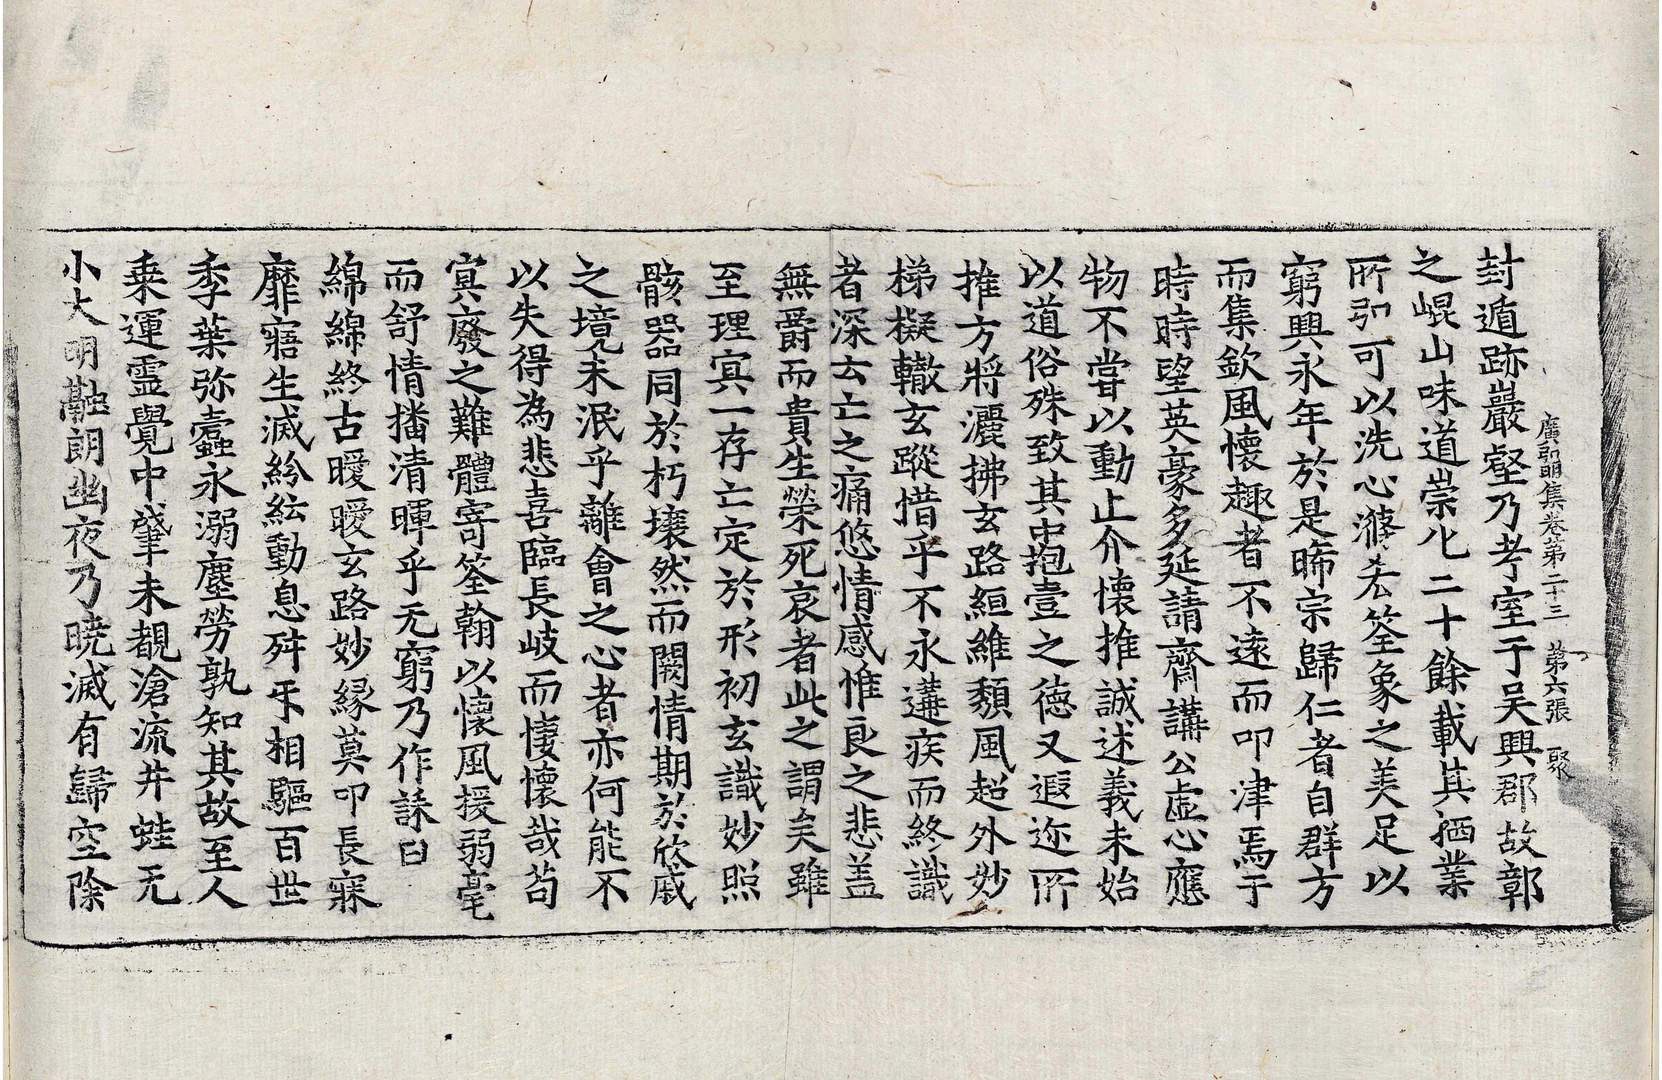 廣弘明集卷第二十三　第六張　聚
封遁跡巖壑乃考室于吴興郡故鄣
之崐山味道崇化二十餘載其栖業
所弘可以洗心滌
筌象之美足以
窮興永年於是晞宗歸仁者自群方
而集欽風懷趣者不遠而叩津焉于
時時望英豪多延請齋講公虛心應
物不嘗以動止介懷推誠述義未始
以道俗殊致其中抱壹之德又遐迩所
推方將灑拂玄路絙維頹風超外妙
梯擬轍玄蹤惜乎不永遘疾而終識
者深云亡之痛悠情感惟良之悲盖
無爵而貴生榮死哀者此之謂矣雖
至理冥一存亡定於形初玄識妙照
骸器同於朽壤然而闕情期於欣戚
之境未泯乎離會之心者亦何能不
以失得為悲喜臨長岐而悽懷哉苟
冥廢之難體寄筌翰以懷風援弱毫
而舒情播清暉乎无窮乃作誄曰
綿綿終古曖曖玄路妙緣莫叩長寐
靡寤生滅紛紜動息舛牙相驅百世
季葉弥蠹永溺塵勞孰知其故至人
乗運靈覺中肇未覩滄流井蛙无
小大明融朗幽夜乃曉滅有歸空除